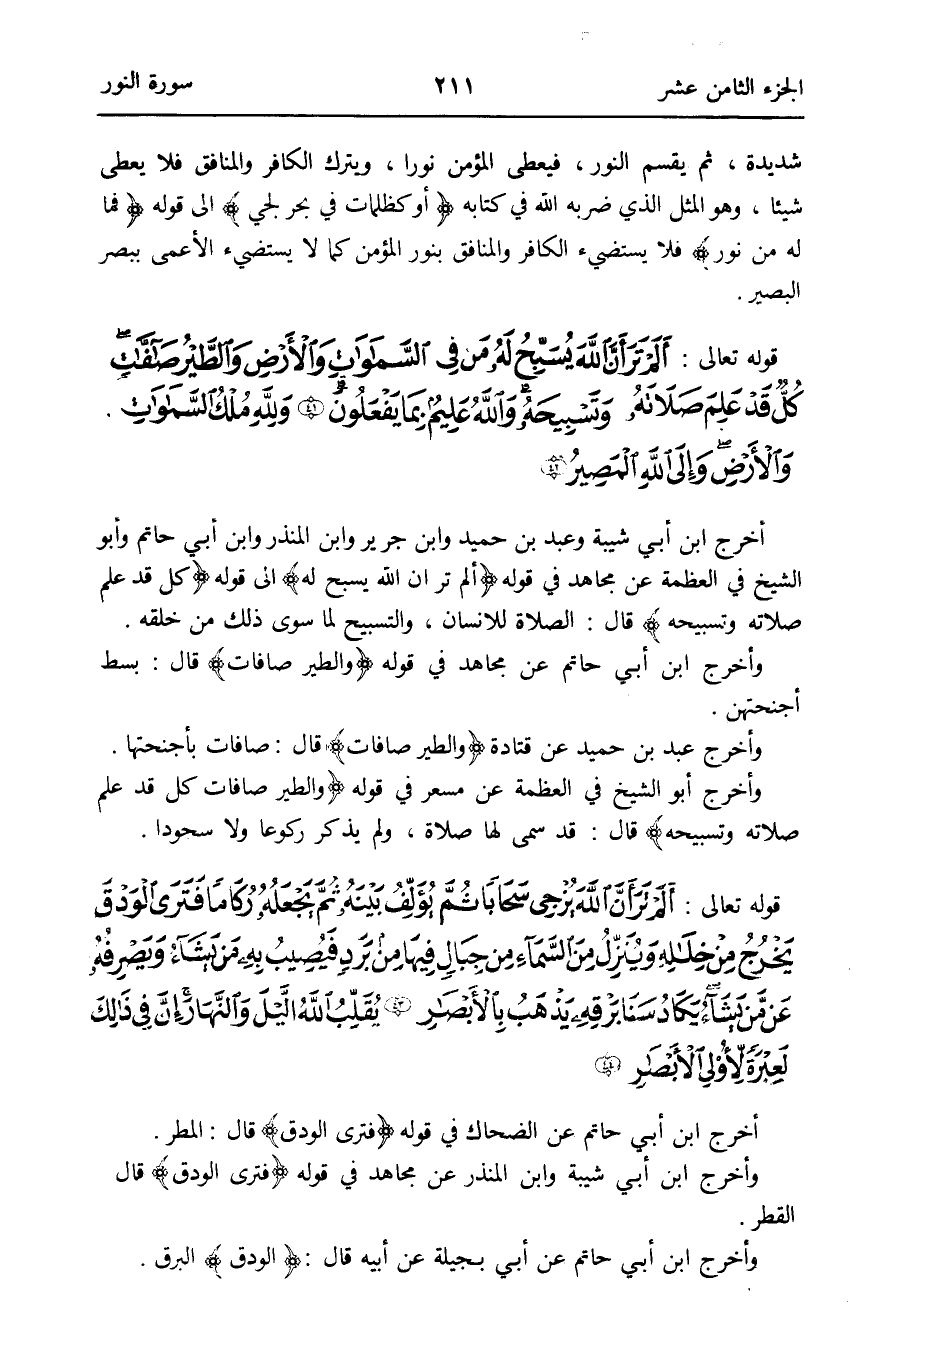 الجزء الثامن عشر ٢١١ سورة النور
شديدة ، ثم يقسم النور ، فيعطى المؤمن نورا ، ويترك الكافر والمنافق فلا يعطى
شيئا ، وهو المثل الذي ضربه الله في كتابه ﴿ أو كظلمات في بحر لجي ﴾ الى قوله ﴿ فما
له من نور ﴾ فلا يستضيء الكافر والمنافق بنور المؤمن كما لا يستضيء الأعمى ببصر
البصير .
قوله تعالى : أَلَمْ تَرَ أَنَّ ٱللَّهَ يُسَبِّحُ لَهُۥ مَن فِى ٱلسَّمَٰوَٰتِ وَٱلْأَرْضِ وَٱلطَّيْرُ صَٰٓفَّٰتٍۖ
كُلٌّ قَدْ عَلِمَ صَلَاتَهُۥ وَتَسْبِيحَهُۥۗ وَٱللَّهُ عَلِيمٌۢ بِمَا يَفْعَلُونَ ﴿٤١﴾ وَلِلَّهِ مُلْكُ ٱلسَّمَٰوَٰتِ .
وَٱلْأَرْضِۖ وَإِلَى ٱللَّهِ ٱلْمَصِيرُ ﴿٤٢﴾
أخرج ابن أبي شيبة وعبد بن حميد وابن جرير وابن المنذر وابن أبي حاتم وأبو
الشيخ في العظمة عن مجاهد في قوله ﴿ألم تر ان الله يسبح له﴾ الى قوله ﴿كل قد علم
صلاته وتسبيحه ﴾ قال : الصلاة للانسان ، والتسبيح لما سوى ذلك من خلقه .
وأخرج ابن أبي حاتم عن مجاهد في قوله ﴿والطير صافات﴾ قال : بسط
أجنحتهن .
وأخرج عبد بن حميد عن قتادة ﴿والطير صافات﴾ قال : صافات بأجنحتها .
وأخرج أبو الشيخ في العظمة عن مسعر في قوله ﴿والطير صافات كل قد علم
صلاته وتسبيحه﴾ قال : قد سمى لها صلاة ، ولم يذكر ركوعا ولا سجودا .
قوله تعالى : أَلَمْ تَرَ أَنَّ ٱللَّهَ يُزْجِى سَحَابًا ثُمَّ يُؤَلِّفُ بَيْنَهُۥ ثُمَّ يَجْعَلُهُۥ رُكَامًا فَتَرَى ٱلْوَدْقَ
يَخْرُجُ مِنْ خِلَٰلِهِۦ وَيُنَزِّلُ مِنَ ٱلسَّمَآءِ مِن جِبَالٍ فِيهَا مِنۢ بَرَدٍ فَيُصِيبُ بِهِۦ مَن يَشَآءُ وَيَصْرِفُهُۥ
عَن مَّن يَشَآءُۖ يَكَادُ سَنَا بَرْقِهِۦ يَذْهَبُ بِٱلْأَبْصَٰرِ ﴿٤٣﴾ يُقَلِّبُ ٱللَّهُ ٱلَّيْلَ وَٱلنَّهَارَۚ إِنَّ فِى ذَٰلِكَ
لَعِبْرَةً لِّأُو۟لِى ٱلْأَبْصَٰرِ ﴿٤٤﴾
أخرج ابن أبي حاتم عن الضحاك في قوله ﴿فترى الودق﴾ قال : المطر .
وأخرج ابن أبي شيبة وابن المنذر عن مجاهد في قوله ﴿فترى الودق﴾ قال
القطر .
وأخرج ابن أبي حاتم عن أبي بجيلة عن أبيه قال :﴿ الودق ﴾ البرق .